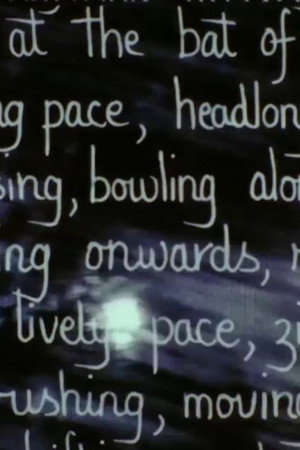 at the bat of
ng pace, headlon
sing, bowling alo
ing onwards,
lively pace,
rushing, moving